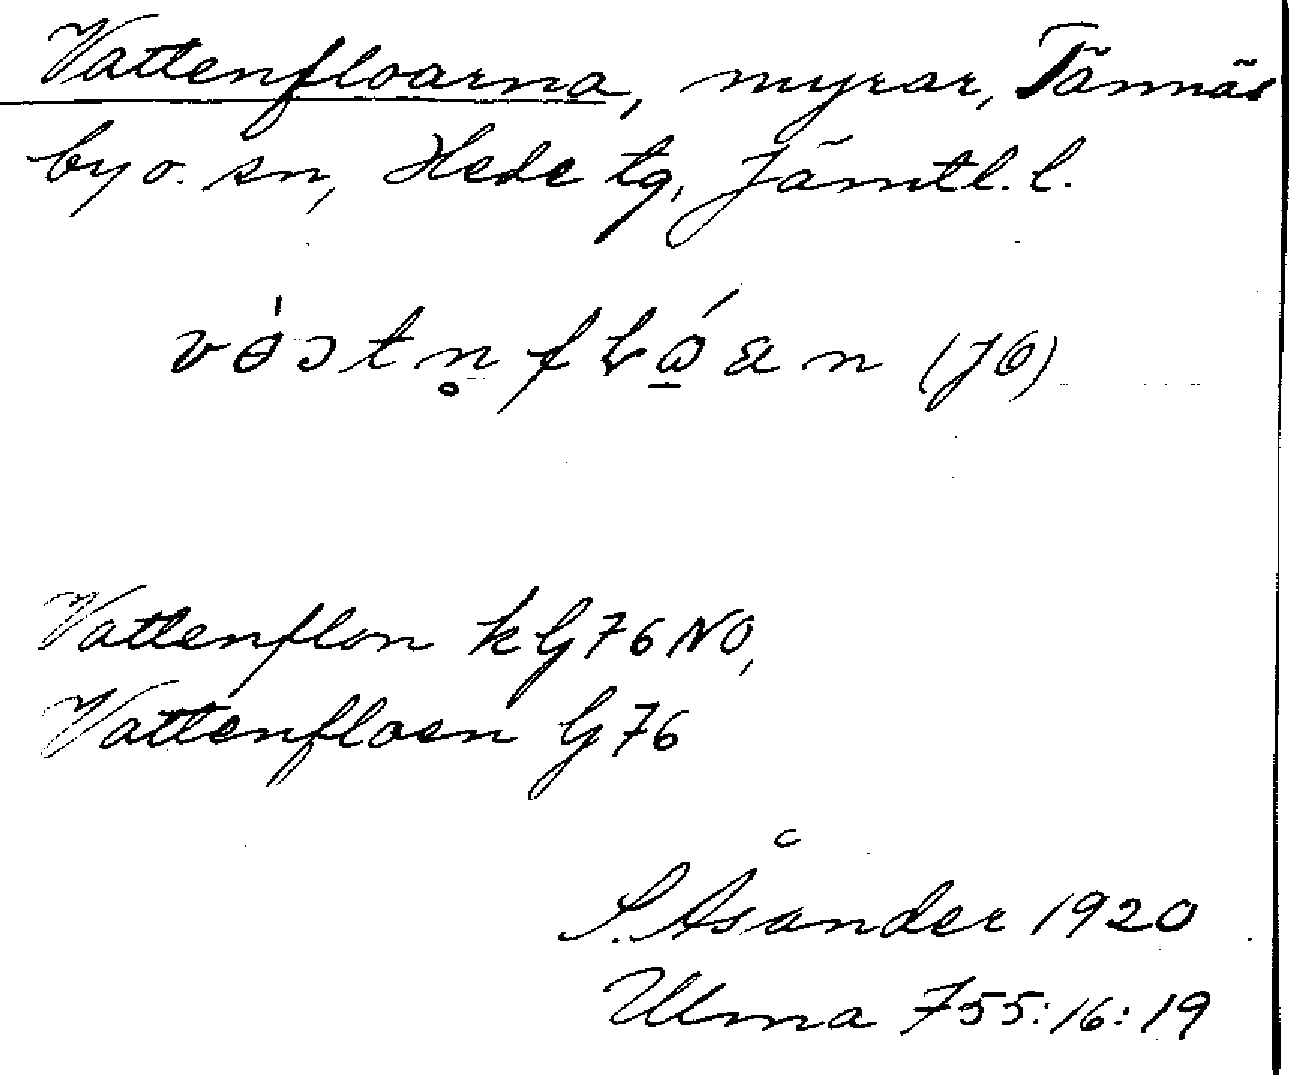 Vattenfloarna, myrar, Tännäs
by o. sn, Hede tg, Jämtl. l.
Vattenflon k G76 NO,
Vattenfloen G76
S. Åsander 1920
Ulma 755:16:19